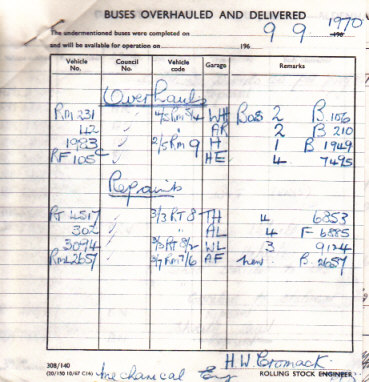 BUSES OVERHAULED AND DELIVERED
The undermentioned buses were completed on 9 9 1970 196
and will be available for operation on 196
Vehicle No. Council No. Vehicle code Garage Remarks
Overhauls
RM 231 ✓ 4/5RM5/4 WH Bos 2 B 106
42 ✓ " AK 2 B 210
1983 ✓ 2/5RM 9 H 1 B 1949
RF 105 ✓ HE 4 7495
Repaints
RT 4517 ✓ 3/3 RT 8 TH 4 6853
302 ✓ " AL 4 F 6885
3094 ✓ WL 3 9124
RML2657 ✓ AF new B 2657
H.W. Cromack
308/140
(20/150 10/67 C14) Mechanical Eng ROLLING STOCK ENGINEER